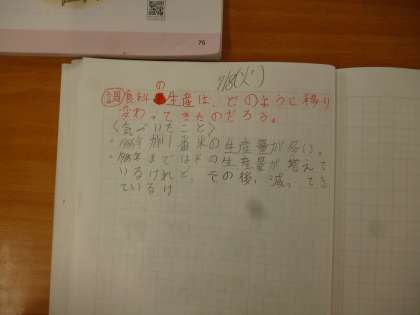 76
7/8(火)
調 食料の生産は、どのように移り
変わってきたのだろう。
〈気づいたこと〉
・1965年が1番米の生産量が多い。
・1985年までは の生産量が増えて
いるけれど、その後、減ってき
ているけ